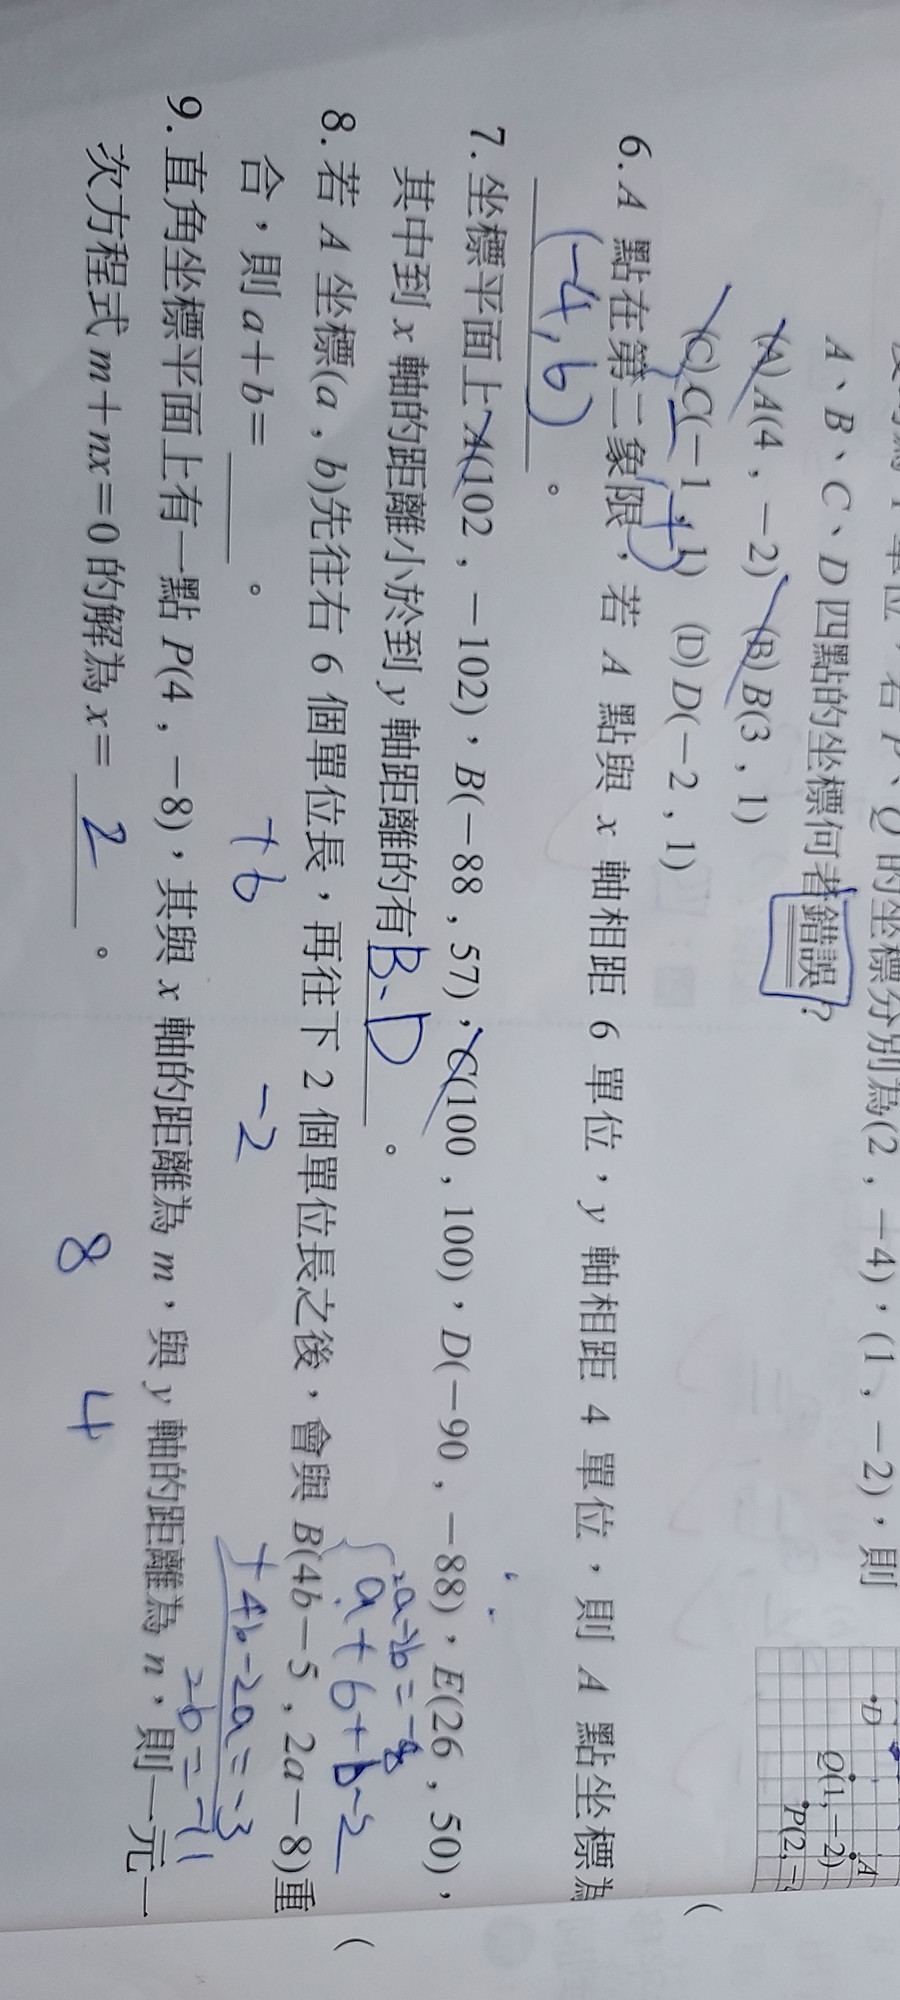 A、B、C、D 四點的坐標何者錯誤？
(A) A(4，-2) (B) B(3，1)
(C) C(-1，1) (D) D(-2，1)
•D
A
Q(1，-2)
P(2，-
6. A 點在第二象限，若 A 點與 x 軸相距 6 單位，y 軸相距 4 單位，則 A 點坐標為
(-4, 6) 。
7. 坐標平面上 A(102，-102)，B(-88，57)，C(100，100)，D(-90，-88)，E(26，50)，
其中到 x 軸的距離小於到 y 軸距離的有 B、D 。
8. 若 A 坐標(a，b)先往右 6 個單位長，再往下 2 個單位長之後，會與 B(4b-5，2a-8)重
合，則 a+b= 。
+6 -2
2a-b=-8
a+6+b-2
+4b-2a=-3
9. 直角坐標平面上有一點 P(4，-8)，其與 x 軸的距離為 m，與 y 軸的距離為 n，則一元一
次方程式 m+nx=0 的解為 x= 2 。
8 4